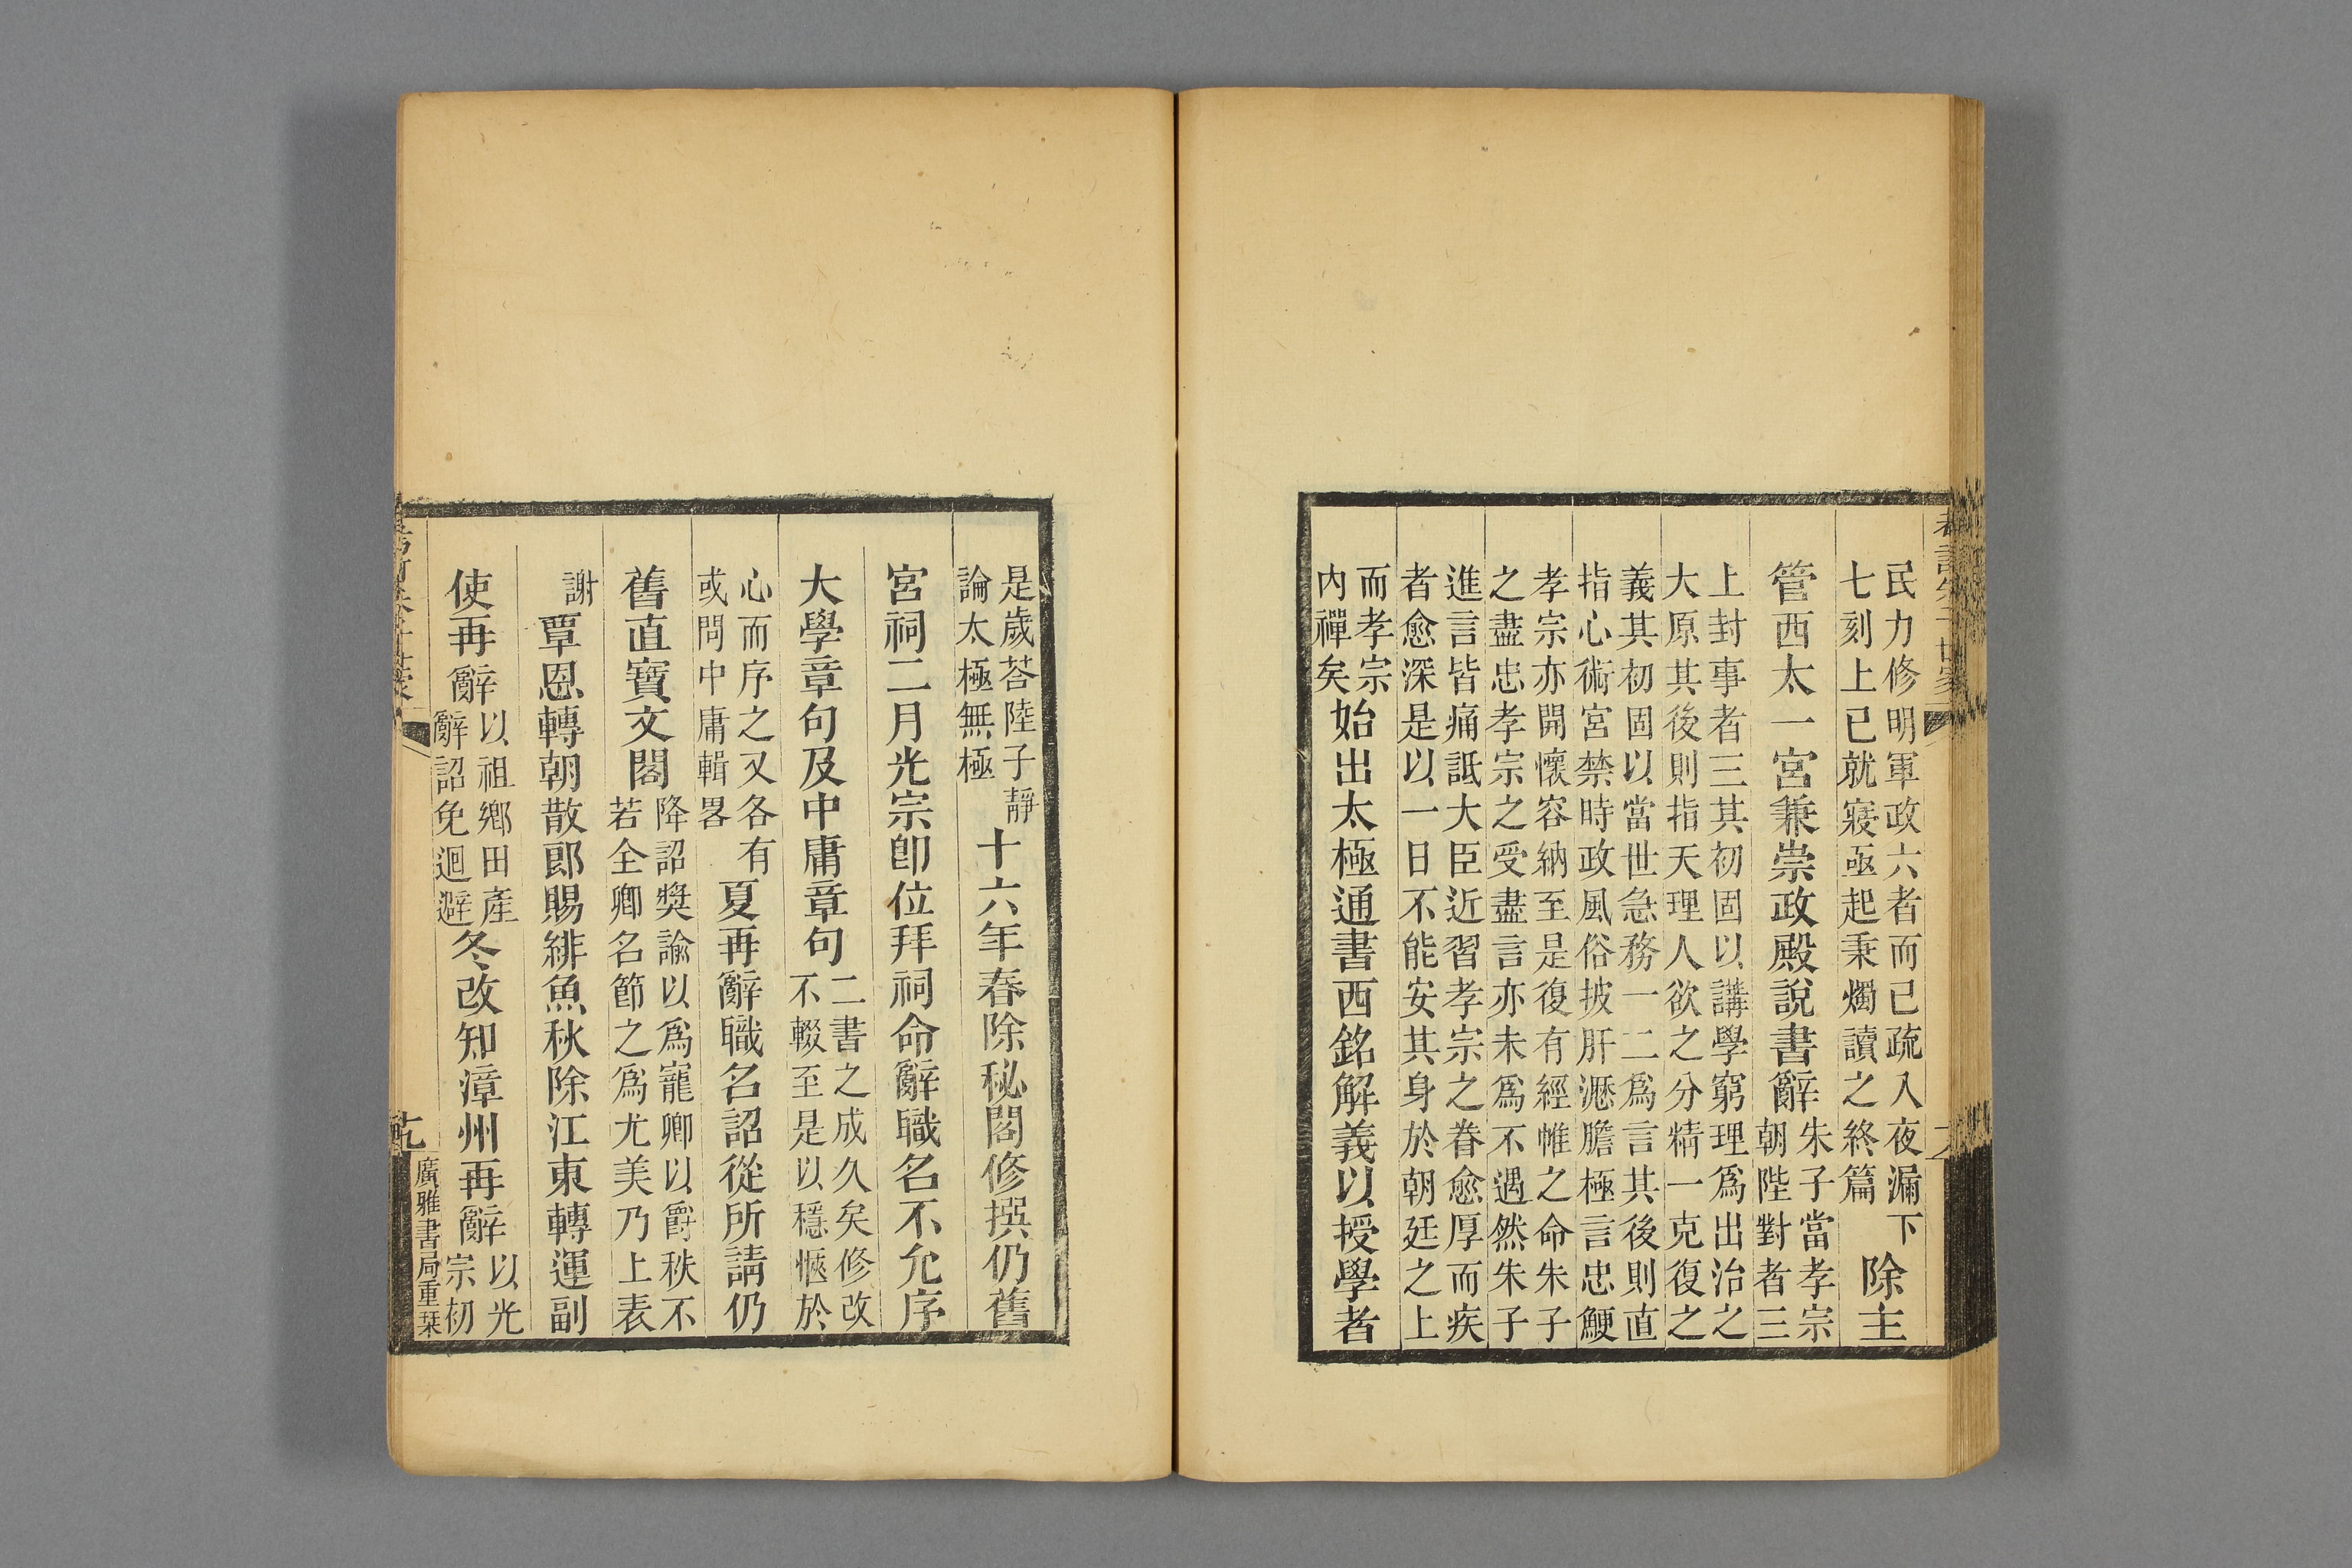 民力修明軍政六者而已疏入夜漏下
七刻上已就寢亟起秉燭讀之終篇
除主
管西太一宮兼崇政殿說書辭
朱子當孝宗
朝陛對者三
上封事者三其初固以講學窮理爲出治之
大原其後則指天理人欲之分精一克復之
義其初固以當世急務一二爲言其後則直
指心術宮禁時政風俗披肝瀝膽極言忠鯁
孝宗亦開懷容納至是復有經帷之命朱子
之盡忠孝宗之受盡言亦未爲不遇然朱子
進言皆痛詆大臣近習孝宗之眷愈厚而疾
者愈深是以一日不能安其身於朝廷之上
而孝宗
内禪矣
始出太極通書西銘解義以授學者
是歲荅陸子靜
論太極無極
十六年春除秘閣修撰仍舊
宮祠二月光宗卽位拜祠命辭職名不允序
大學章句及中庸章句
二書之成久矣修改
不輟至是以穩愜於
心而序之又各有
或問中庸輯畧
夏再辭職名詔從所請仍
舊直寶文閣
降詔獎諭以爲寵卿以爵秩不
若全卿名節之爲尤美乃上表
謝
覃恩轉朝散郎賜緋魚秋除江東轉運副
使再辭
以祖鄉田產
辭詔免迴避
冬改知漳州再辭
以光
宗初
廣雅書局重栞